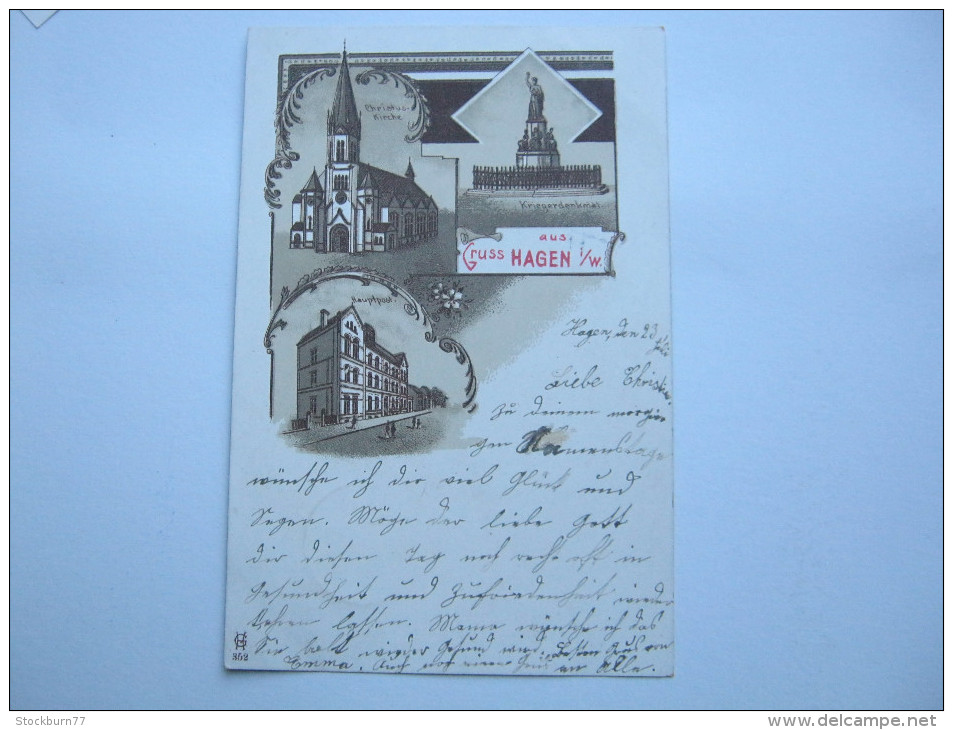 Christus-
Kirche
Kriegerdenkmal
Gruss aus
HAGEN i/W.
Hauptpost.
Hagen, den 23
Liebe
zu deinem morgi
gen Namenstage
wünsche ich dir viel Glück und
Segen. Möge der liebe Gott
dir diesen Tag noch recht oft in
Gesundheit und Zufriedenheit wieder
kehren lassen. Mama wünsche ich das
Sie balt wieder Gesund wird. Besten Gruß
Emma. Auch an Alle.
352
Stockburn77
http://www.delcampe.net